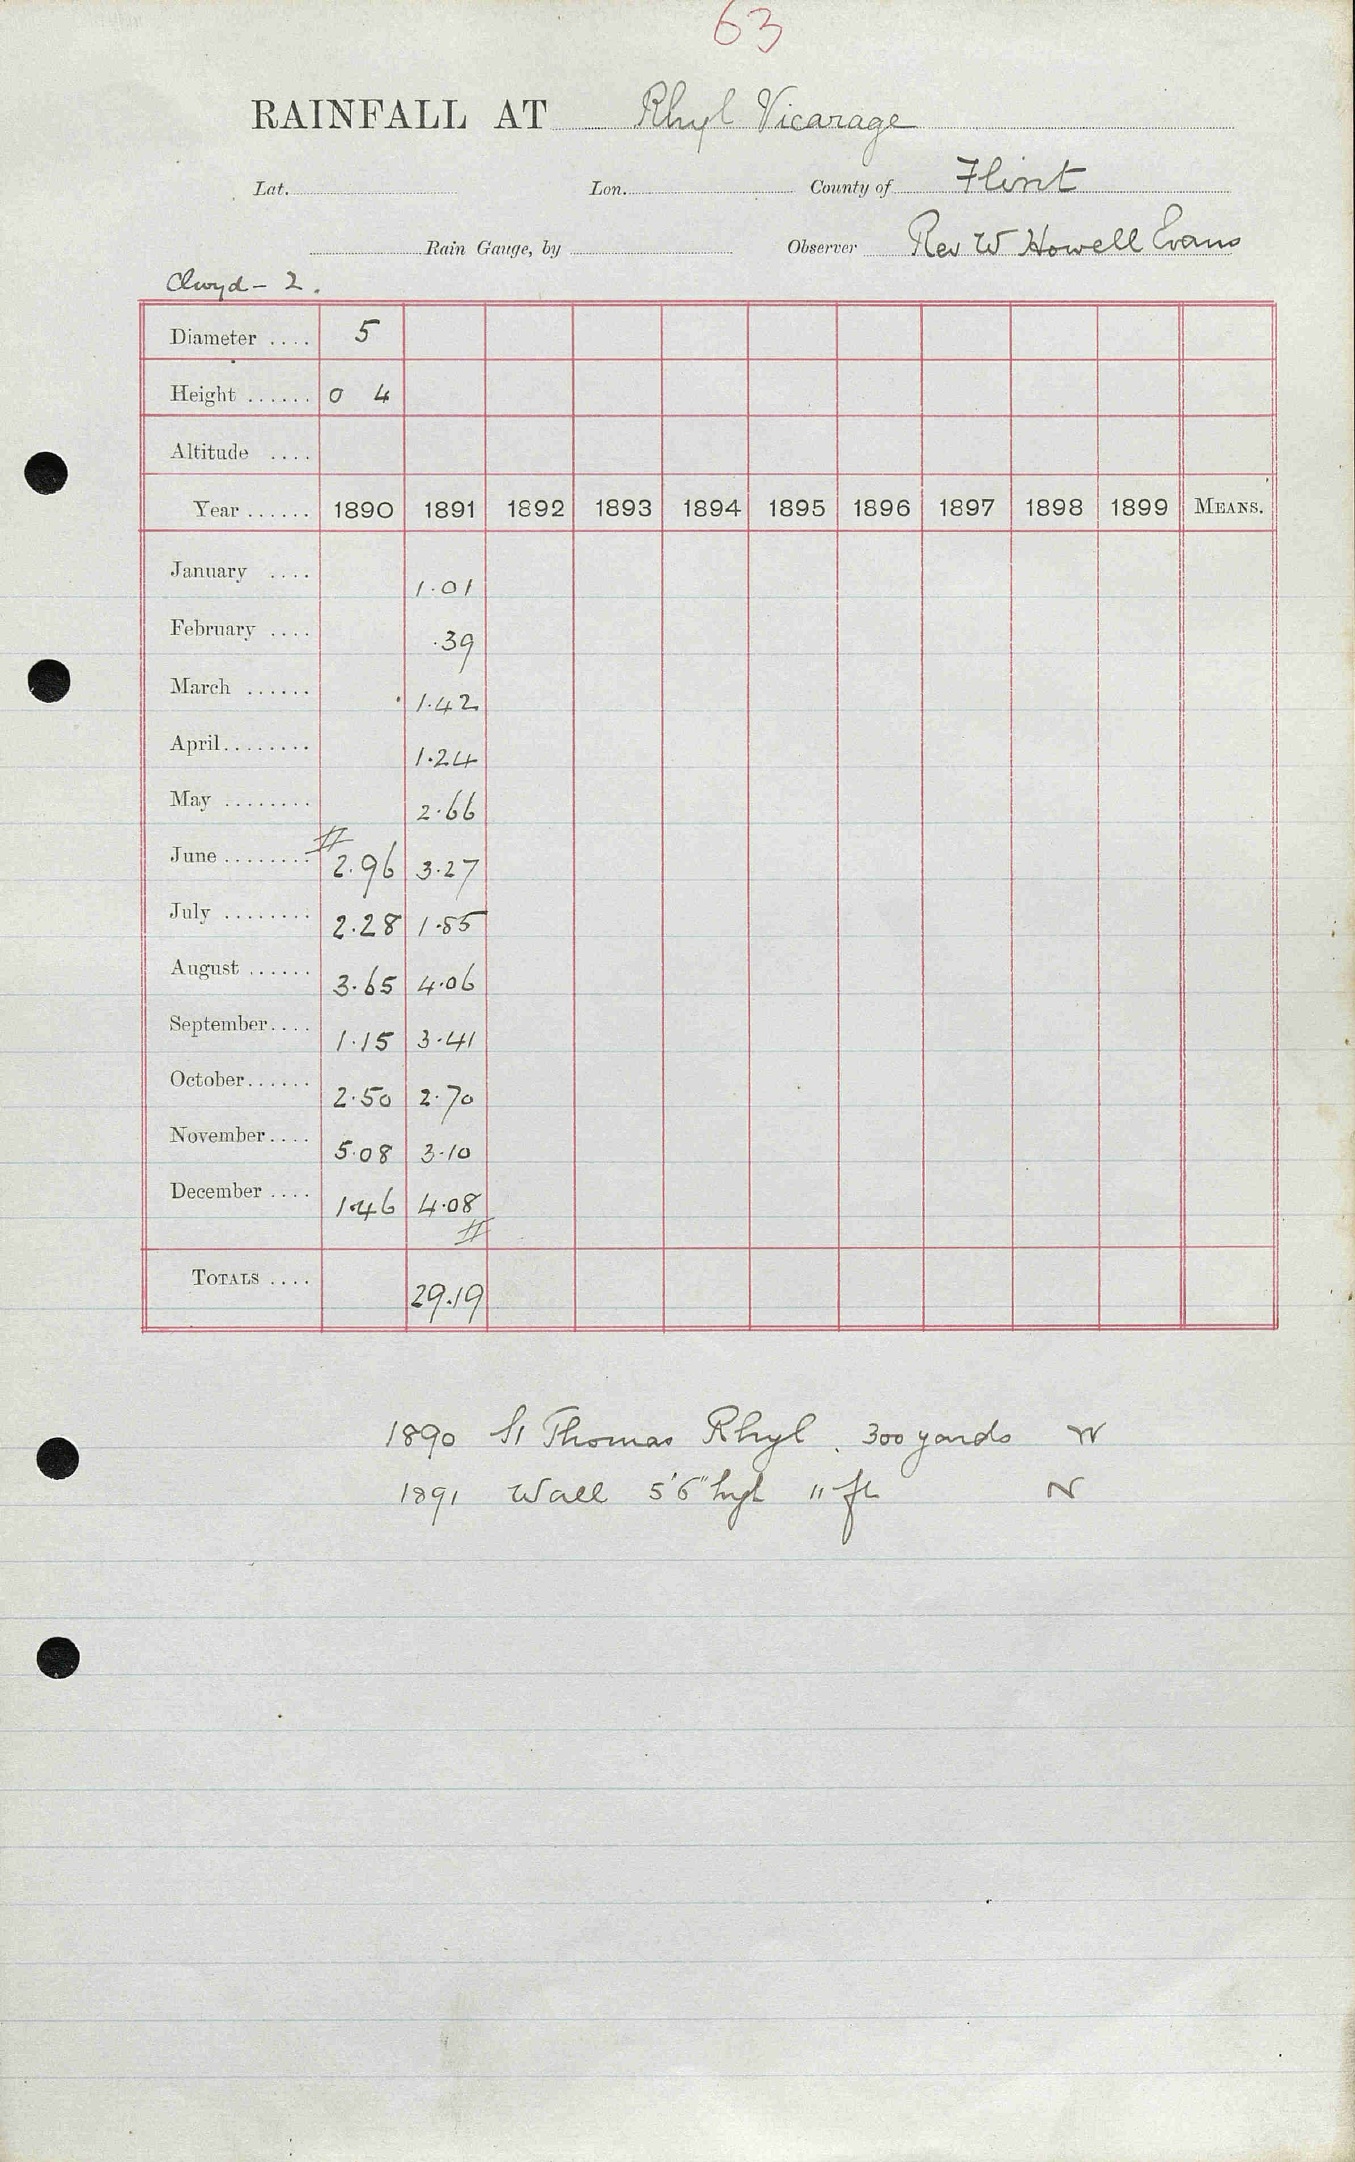 63
RAINFALL AT Rhyl Vicarage
Lat. Lon. County of Flint
Rain Gauge, by Observer Rev W Howell Evans
Clwyd - 2.
Diameter .... 5
Height ...... 0 4
Altitude ....
Year ...... 1890 1891 1892 1893 1894 1895 1896 1897 1898 1899 MEANS.
January .... 1.01
February .... .39
March ...... 1.42
April........ 1.24
May ........ 2.66
June ........ 2.96 3.27
July ........ 2.28 1.85
August ...... 3.65 4.06
September.... 1.15 3.41
October...... 2.50 2.70
November.... 5.08 3.10
December .... 1.46 4.08
TOTALS .... 29.19
1890 St Thomas Rhyl. 300 yards W
1891 Wall 5'6" high 11 ft N